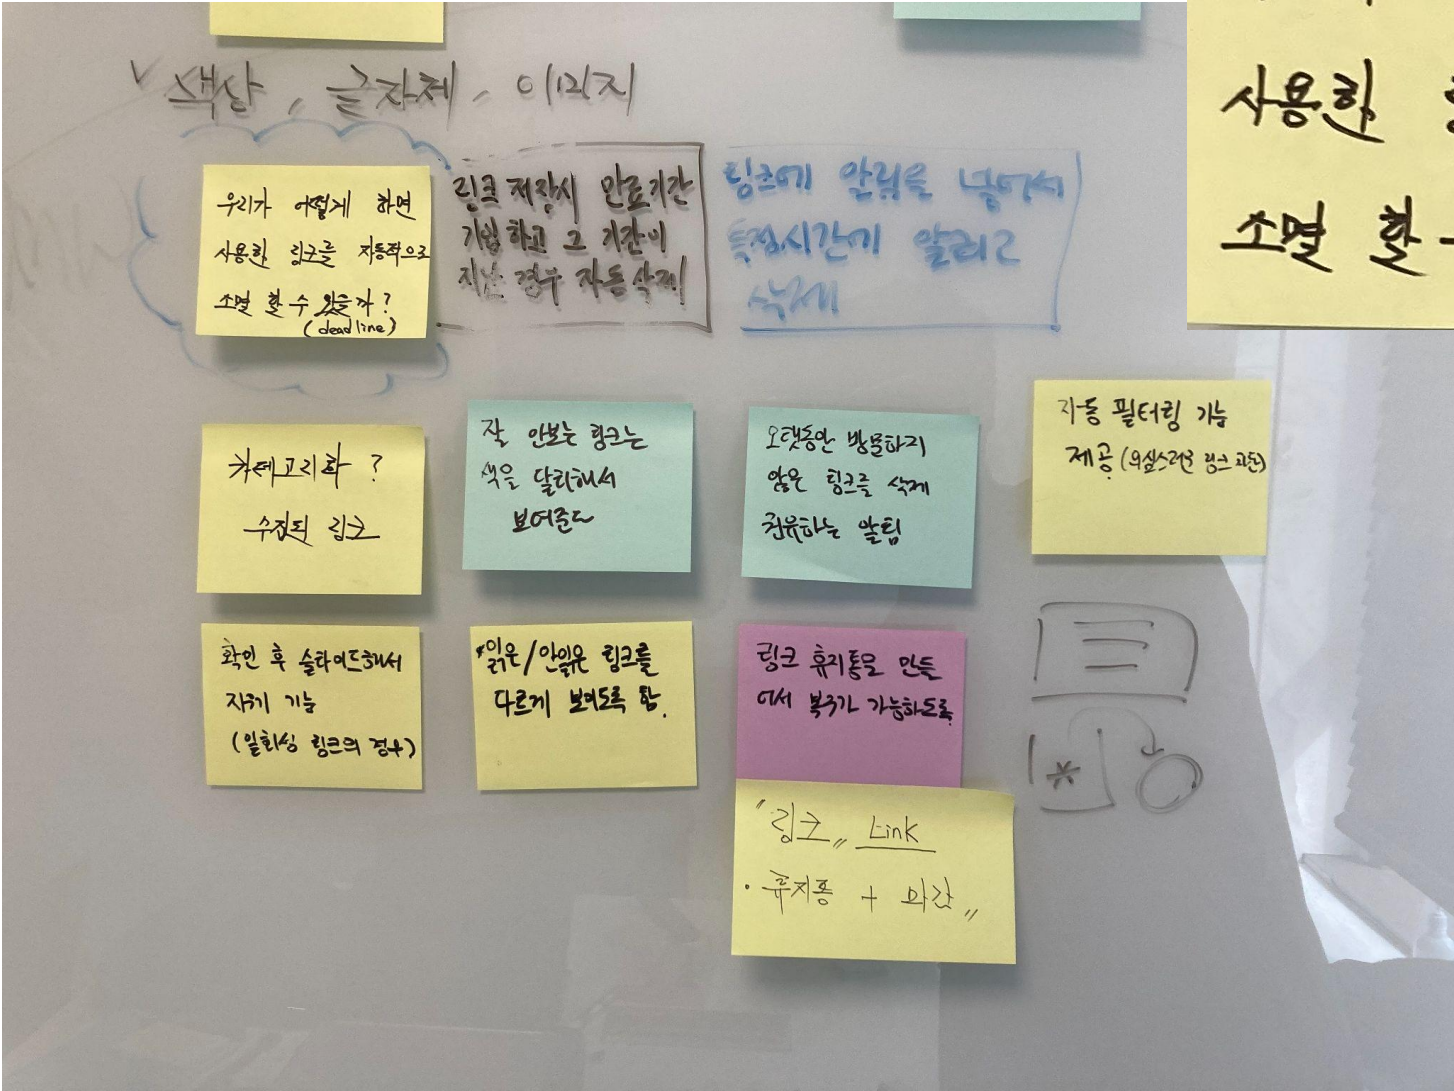 색상, 글자체, 이미지
우리가 어떻게 하면
사용한 링크를 자동적으로
소멸 할 수 있을까?
(deadline)
링크 저장시 만료기간
기입하고 그 기간이
지난 경우 자동삭제
링크에 알림을 넣어서
특정시간에 알리고
삭제
사용한
소멸 할
카테고리화 ?
수집된 링크
잘 안보는 링크는
색을 달리해서
보여준다
오랫동안 방문하지
않은 링크를 삭제
권유하는 알림
자동 필터링 기능
제공 (의심스러운 링크
확인 후 슬라이드해서
기능
(일회성 링크의 경우)
*읽은/안읽은 링크를
다르게 보이도록 함.
링크 휴지통을 만들
어서 복구가 가능하도록
"링크" Link
· 휴지통 +
*